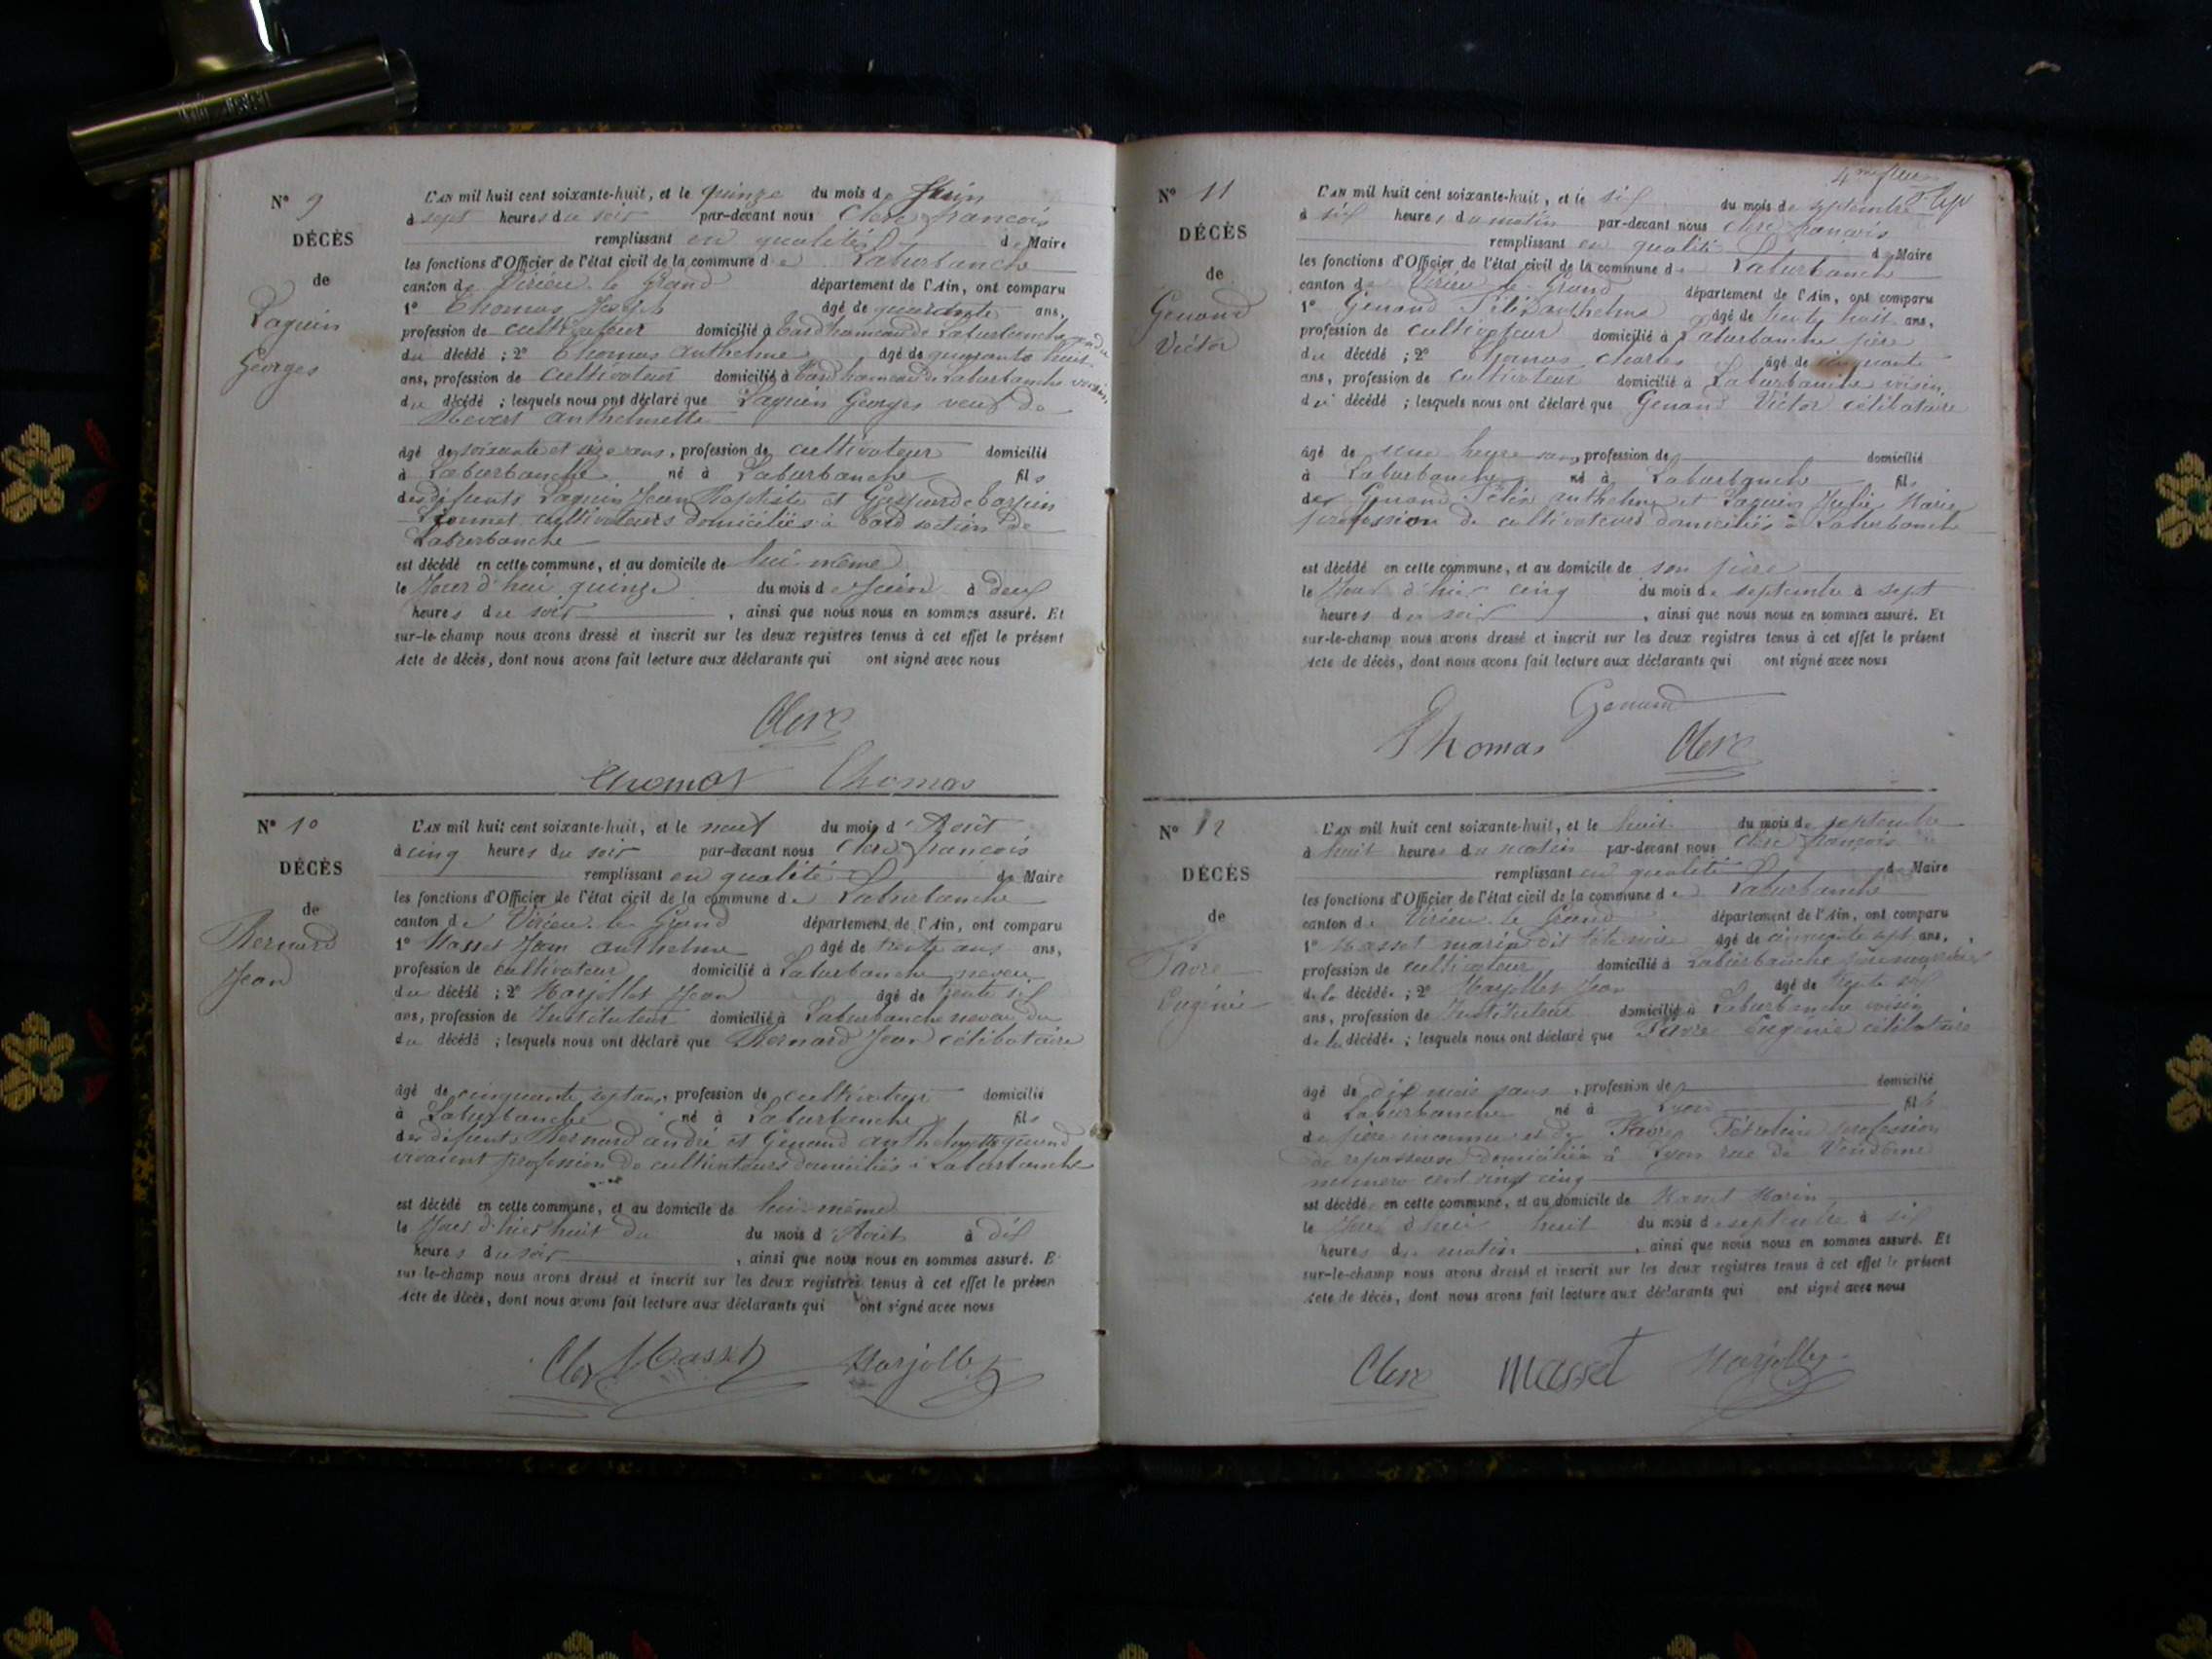 N° 9
DÉCÈS
de
Laguin
Georges
L'AN mil huit cent soixante-huit, et le quinze du mois de Juin
à sept heures du soir par-devant nous Clerc françois
remplissant en qualité de Maire
les fonctions d'Officier de l'état civil de la commune de Laburbanche
canton de Virieu le Grand département de l'Ain, ont comparu
1° Thomas Joseph âgé de quarante ans,
profession de cultivateur domicilié à hameau de Laburbanche
du décédé ; 2° Thomas Anthelme âgé de quarante huit
ans, profession de cultivateur domicilié à hameau de Laburbanche voisin
du décédé ; lesquels nous ont déclaré que Laguin Georges veuf de
anthelmette
âgé de soixante et ans, profession de cultivateur domicilié
à Laburbanche né à Laburbanche fils
des défunts Laguin Jean Baptiste et
cultivateurs domiciliés à section de
Laburbanche
est décédé en cette commune, et au domicile de lui-même
le Jour d'hui quinze du mois de Juin à deux
heures du soir , ainsi que nous nous en sommes assuré. Et
sur-le-champ nous avons dressé et inscrit sur les deux registres tenus à cet effet le présent
Acte de décès, dont nous avons fait lecture aux déclarants qui ont signé avec nous
Clerc
Thomas Thomas
N° 10
DÉCÈS
de
Bernard
Jean
L'AN mil huit cent soixante-huit, et le neuf du mois d'Août
à cinq heures du soir par-devant nous Clerc françois
remplissant en qualité de Maire
les fonctions d'Officier de l'état civil de la commune de Laburbanche
canton de Virieu le Grand département de l'Ain, ont comparu
1° Masset Jean anthelme âgé de trente ans ans,
profession de cultivateur domicilié à Laburbanche neveu
du décédé ; 2° Marjollet Jean âgé de trente six
ans, profession de Instituteur domicilié à Laburbanche neveu du
du décédé ; lesquels nous ont déclaré que Bernard Jean célibataire
âgé de cinquante sept ans, profession de cultivateur domicilié
à Laburbanche né à Laburbanche fils
des défunts Bernard andré et Genand anthelmette quand
vivaient profession de cultivateurs domiciliés à Laburbanche
est décédé en cette commune, et au domicile de lui-même
le Jour d'hier huit du du mois d'Août à dix
heures du soir , ainsi que nous nous en sommes assuré. E
sur-le-champ nous avons dressé et inscrit sur les deux registres tenus à cet effet le présen
Acte de décès, dont nous avons fait lecture aux déclarants qui ont signé avec nous
Clerc Masset Marjollet
N° 11
DÉCÈS
de
Genand
Victor
L'AN mil huit cent soixante-huit, et le six du mois de septembre
à six heures du matin par-devant nous Clerc françois
remplissant en qualité de Maire
les fonctions d'Officier de l'état civil de la commune de Laburbanche
canton de Virieu le Grand département de l'Ain, ont comparu
1° Genand Félix anthelme âgé de trente huit ans,
profession de cultivateur domicilié à Laburbanche père
du décédé ; 2° Thomas Charles âgé de cinquante
ans, profession de cultivateur domicilié à Laburbanche voisin
du décédé ; lesquels nous ont déclaré que Genand Victor célibataire
âgé de une heure ans, profession de domicilié
à Laburbanche né à Laburbanche fils
de Genand Félix anthelme et Laguin Julie Marie
profession de cultivateurs domiciliés à Laburbanche
est décédé en cette commune, et au domicile de son père
le Jour d'hier cinq du mois de septembre à sept
heures du soir , ainsi que nous nous en sommes assuré. Et
sur-le-champ nous avons dressé et inscrit sur les deux registres tenus à cet effet le présent
Acte de décès, dont nous avons fait lecture aux déclarants qui ont signé avec nous
Genand
Thomas Clerc
N° 12
DÉCÈS
de
Favre
Eugénie
L'AN mil huit cent soixante-huit, et le huit du mois de septembre
à huit heures du matin par-devant nous Clerc françois
remplissant en qualité de Maire
les fonctions d'Officier de l'état civil de la commune de Laburbanche
canton de Virieu le Grand département de l'Ain, ont comparu
1° Masset marin dit tête noire âgé de cinquante sept ans,
profession de cultivateur domicilié à Laburbanche père nourricier
de la décédée ; 2° Marjollet Jean âgé de trente six
ans, profession de Instituteur domicilié à Laburbanche voisin
de la décédée ; lesquels nous ont déclaré que Favre Eugénie célibataire
âgé de dix mois ans, profession de domicilié
à Laburbanche né à Lyon fil
de père inconnu et de Favre profession
de repasseuse domiciliée à Lyon rue de Vendôme
numero cent vingt cinq
est décédé en cette commune, et au domicile de Masset Marin
le Jour d'hui huit du mois de septembre à six
heures du matin , ainsi que nous nous en sommes assuré. Et
sur-le-champ nous avons dressé et inscrit sur les deux registres tenus à cet effet le présent
Acte de décès, dont nous avons fait lecture aux déclarants qui ont signé avec nous
Clerc Masset Marjollet